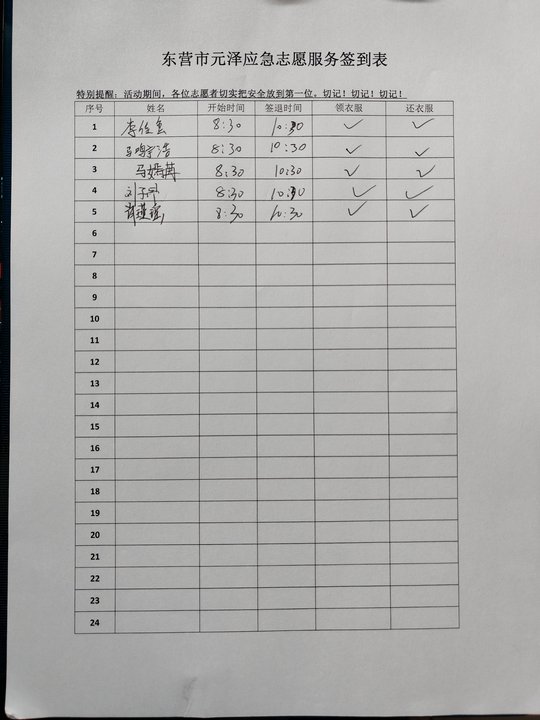 东营市元泽应急志愿服务签到表
特别提醒：活动期间，各位志愿者切实把安全放到第一位。切记！切记！切记！
序号 姓名 开始时间 签退时间 领衣服 还衣服
1 李佳 8:30 10:30 ✓ ✓
2 马鸣宇浩 8:30 10:30 ✓ ✓
3 马嫣 8:30 10:30 ✓ ✓
4 刘子 8:30 10:30 ✓ ✓
5 8:30 10:30 ✓ ✓
6
7
8
9
10
11
12
13
14
15
16
17
18
19
20
21
22
23
24